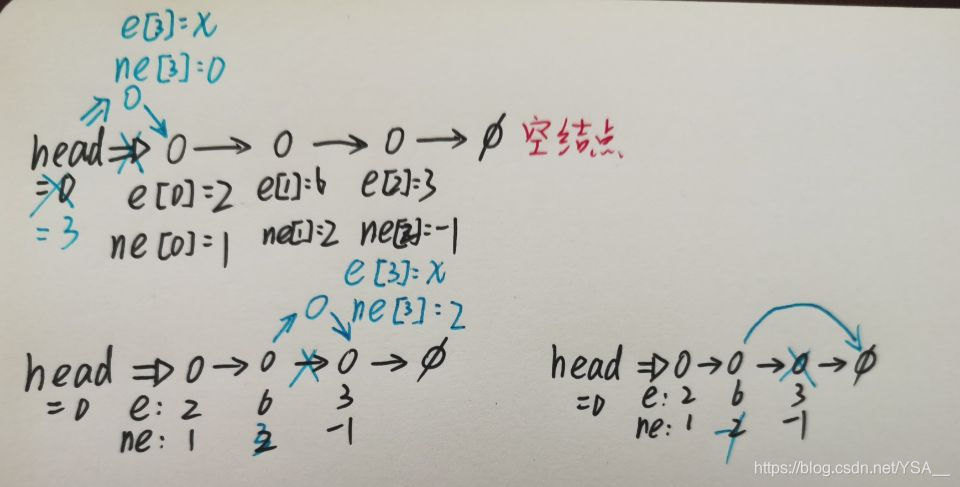 e[3]=x
ne[3]=0
0
head ⇒ 0 → 0 → 0 → ∅ 空结点
=0 e[0]=2 e[1]=6 e[2]=3
=3 ne[0]=1 ne[1]=2 ne[2]=-1
e[3]=x
0 ne[3]=2
head ⇒ 0 → 0 → 0 → ∅
=0 e: 2 6 3
ne: 1 3 -1
head ⇒ 0 → 0 → 0 → ∅
=0 e: 2 6 3
ne: 1 2 -1
https://blog.csdn.net/YSA__